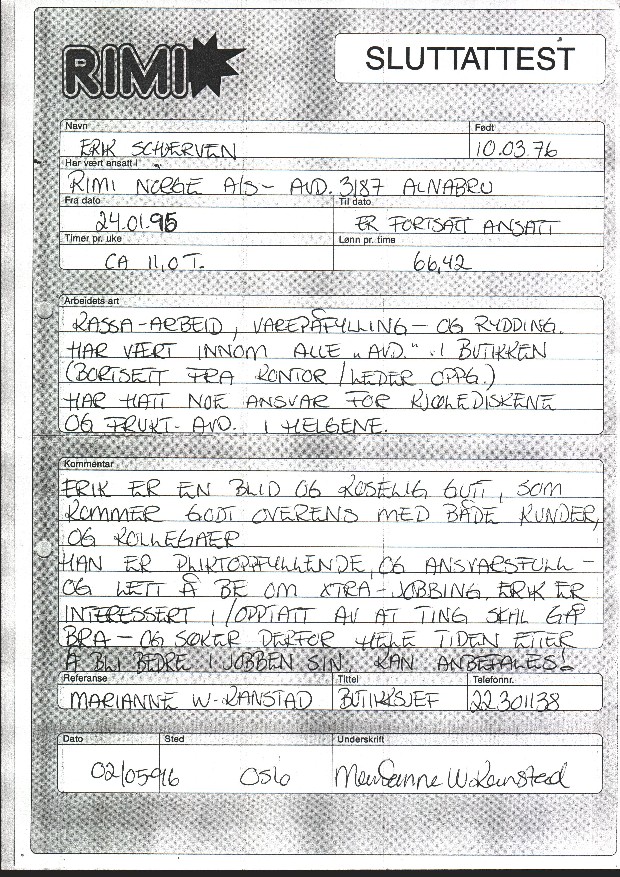 RIMI
SLUTTATTEST
Navn
Født
ERIK SCHJERVEN
10.03.76
Har vært ansatt i
RIMI NORGE A/S - AVD. 3187 ALNABRU
Fra dato
Til dato
24.01.95
ER FORTSATT ANSATT
Timer pr. uke
Lønn pr. time
CA 11,0 T.
66,42
Arbeidets art
KASSA-ARBEID, VAREPÅFYLLING - OG RYDDING.
HAR VÆRT INNOM ALLE „AVD." I BUTIKKEN
(BORTSETT FRA KONTOR / LEDER OPPG.)
HAR HATT NOE ANSVAR FOR KJØLEDISKENE
OG FRUKT- AVD. I HELGENE.
Kommentar
ERIK ER EN BLID OG KOSELIG GUTT, SOM
KOMMER GODT OVERENS MED BÅDE KUNDER,
OG KOLLEGAER
HAN ER PLIKTOPPFYLLENDE, OG ANSVARSFULL -
OG LETT Å BE OM XTRA-JOBBING. ERIK ER
INTERESSERT I /OPPTATT AV AT TING SKAL GÅ
BRA - OG SØKER DERFOR HELE TIDEN ETTER
Å BLI BEDRE I JOBBEN SIN. KAN ANBEFALES!
Referanse
Tittel
Telefonnr.
MARIANNE W-RANSTAD
BUTIKKSJEF
22301138
Dato
Sted
Underskrift
02/05-96
Oslo
Marianne W.Ranstad